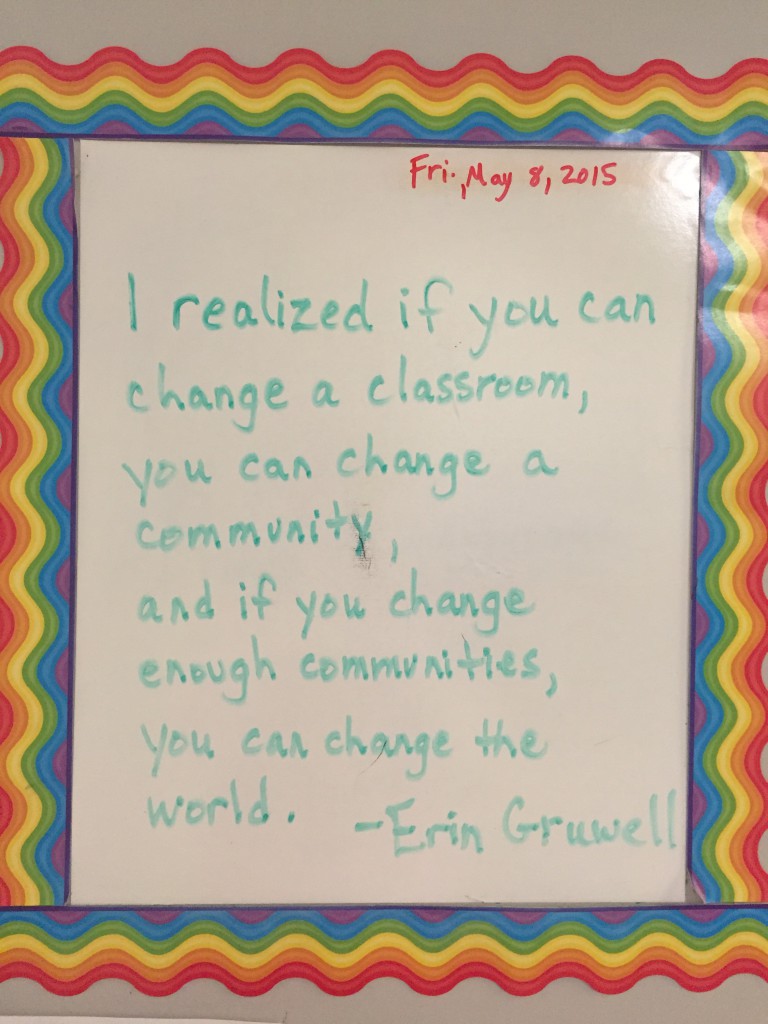 Fri., May 8, 2015
I realized if you can
change a classroom,
you can change a
community,
and if you change
enough communities,
you can change the
world.
-Erin Gruwell